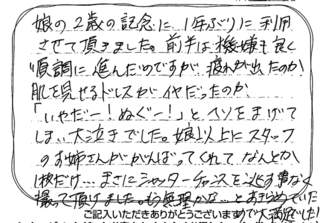 娘の2歳の記念に、1年ぶりに利用
させて頂きました。前半は機嫌も良く
順調に進んだのですが、疲れが出たのか
肌を見せるドレスがイヤだったのか
「いやだー!ぬぐー!」とヘソをまげて
しまい大泣きでした。娘以上にスタッフ
のお姉さんががんばってくれてなんとか
1枚だけ…まさにシャッターチャンスを逃す事なく
撮って頂けました。もう無理かな…とあきらめていた
ので大満足でした
ご記入いただきありがとうございます